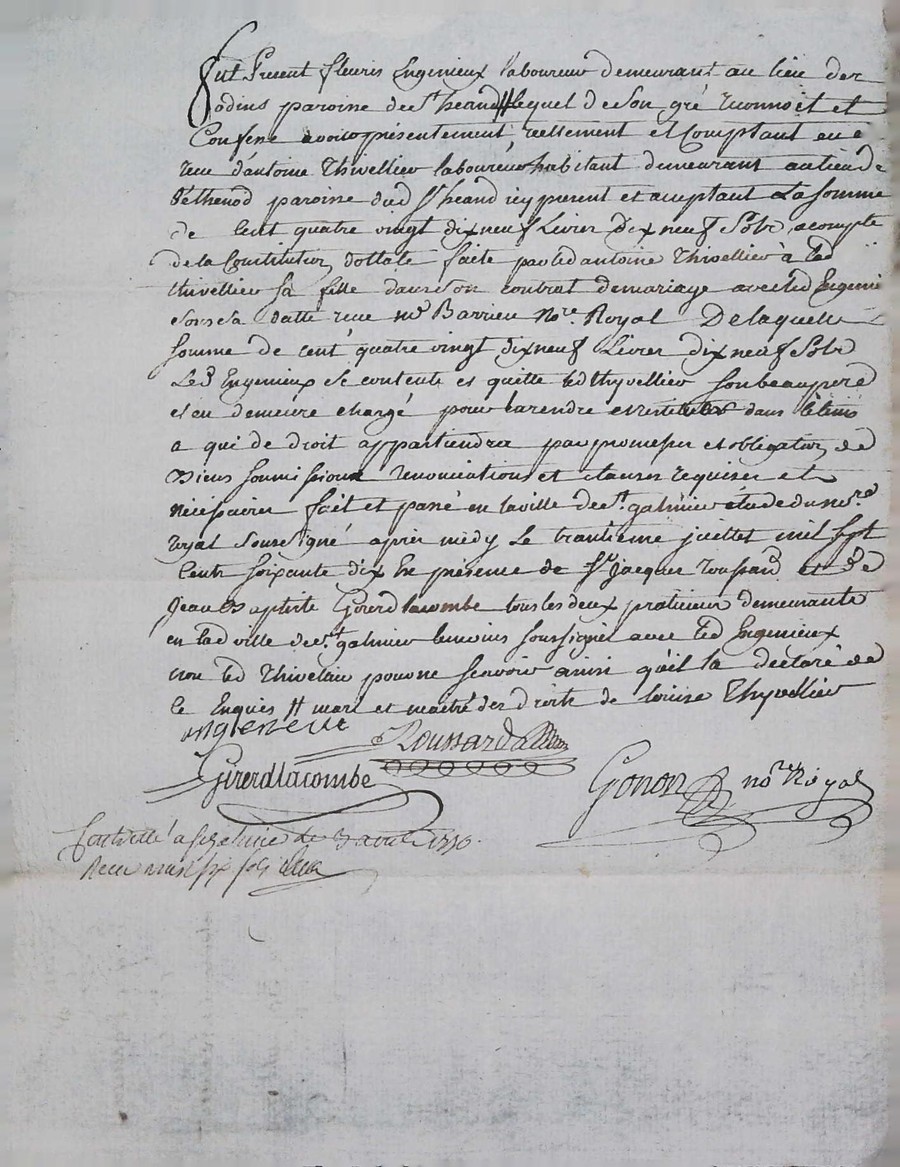 fut Present fleuris Engenieux laboureur demeurant au lieu der
odins paroisse de St heand # lequel de son gré reconnoit et
Confesse avoir présentement réellement et Comptant eu e
receu d'antoine Thivellier laboureur habitant demeurant au lieu de
péthenod paroisse dud St heand icy present et acceptant La somme
de Cent quatre vingt dixneuf Livres Dix neuf Sols, acompte
de la Constitution dottale faite par led antoine Thivellier à lad
thivellier sa fille dans son contrat de mariage avec led Engenie
sous sa datte receu me Barrieu Nore Royal De laquelle
somme de cent quatre vingt dixneuf Livres dix neuf Sols
Led Engenieux se contente et quitte led thyvellier son beaupere
et en demeure chargé pour la rendre et restituer dans le tems
a qui de droit appartiendra par promesses et obligation de
Biens soumissions renonciations et clauses requises et
nécessaires fait et passé en la ville de St galmier étude du nore
royal soussigné après midy Le trantieme juillet mil sept
Cents soixante dix En présence de Sr Jacques Roussard et de
Jean Baptiste Girerd lacombe tous les deux praticiens demeurants
en lad ville de St galmier temoins soussignés avec led Engenieux
non led Thivelier pour ne scavoir ainsi qu'il la déclaré de
ce Enquis # mari et maitre des Droits de louise Thyvellier
anglenieue
Roussard
Girerdlacombe
Gonon nore Royal
Controllé a St galmier le 3 aout 1770.
Receu sols